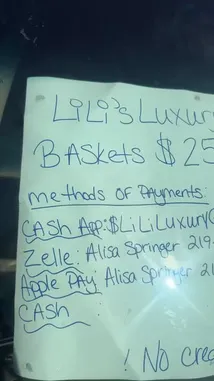 LiLi's Luxury
BASkets $25
methods OF PAYMENTS:
CASH App: $LiLiLuxury
Zelle: Alisa Springer 219
Apple PAy: Alisa Springer 21
CASH
! No